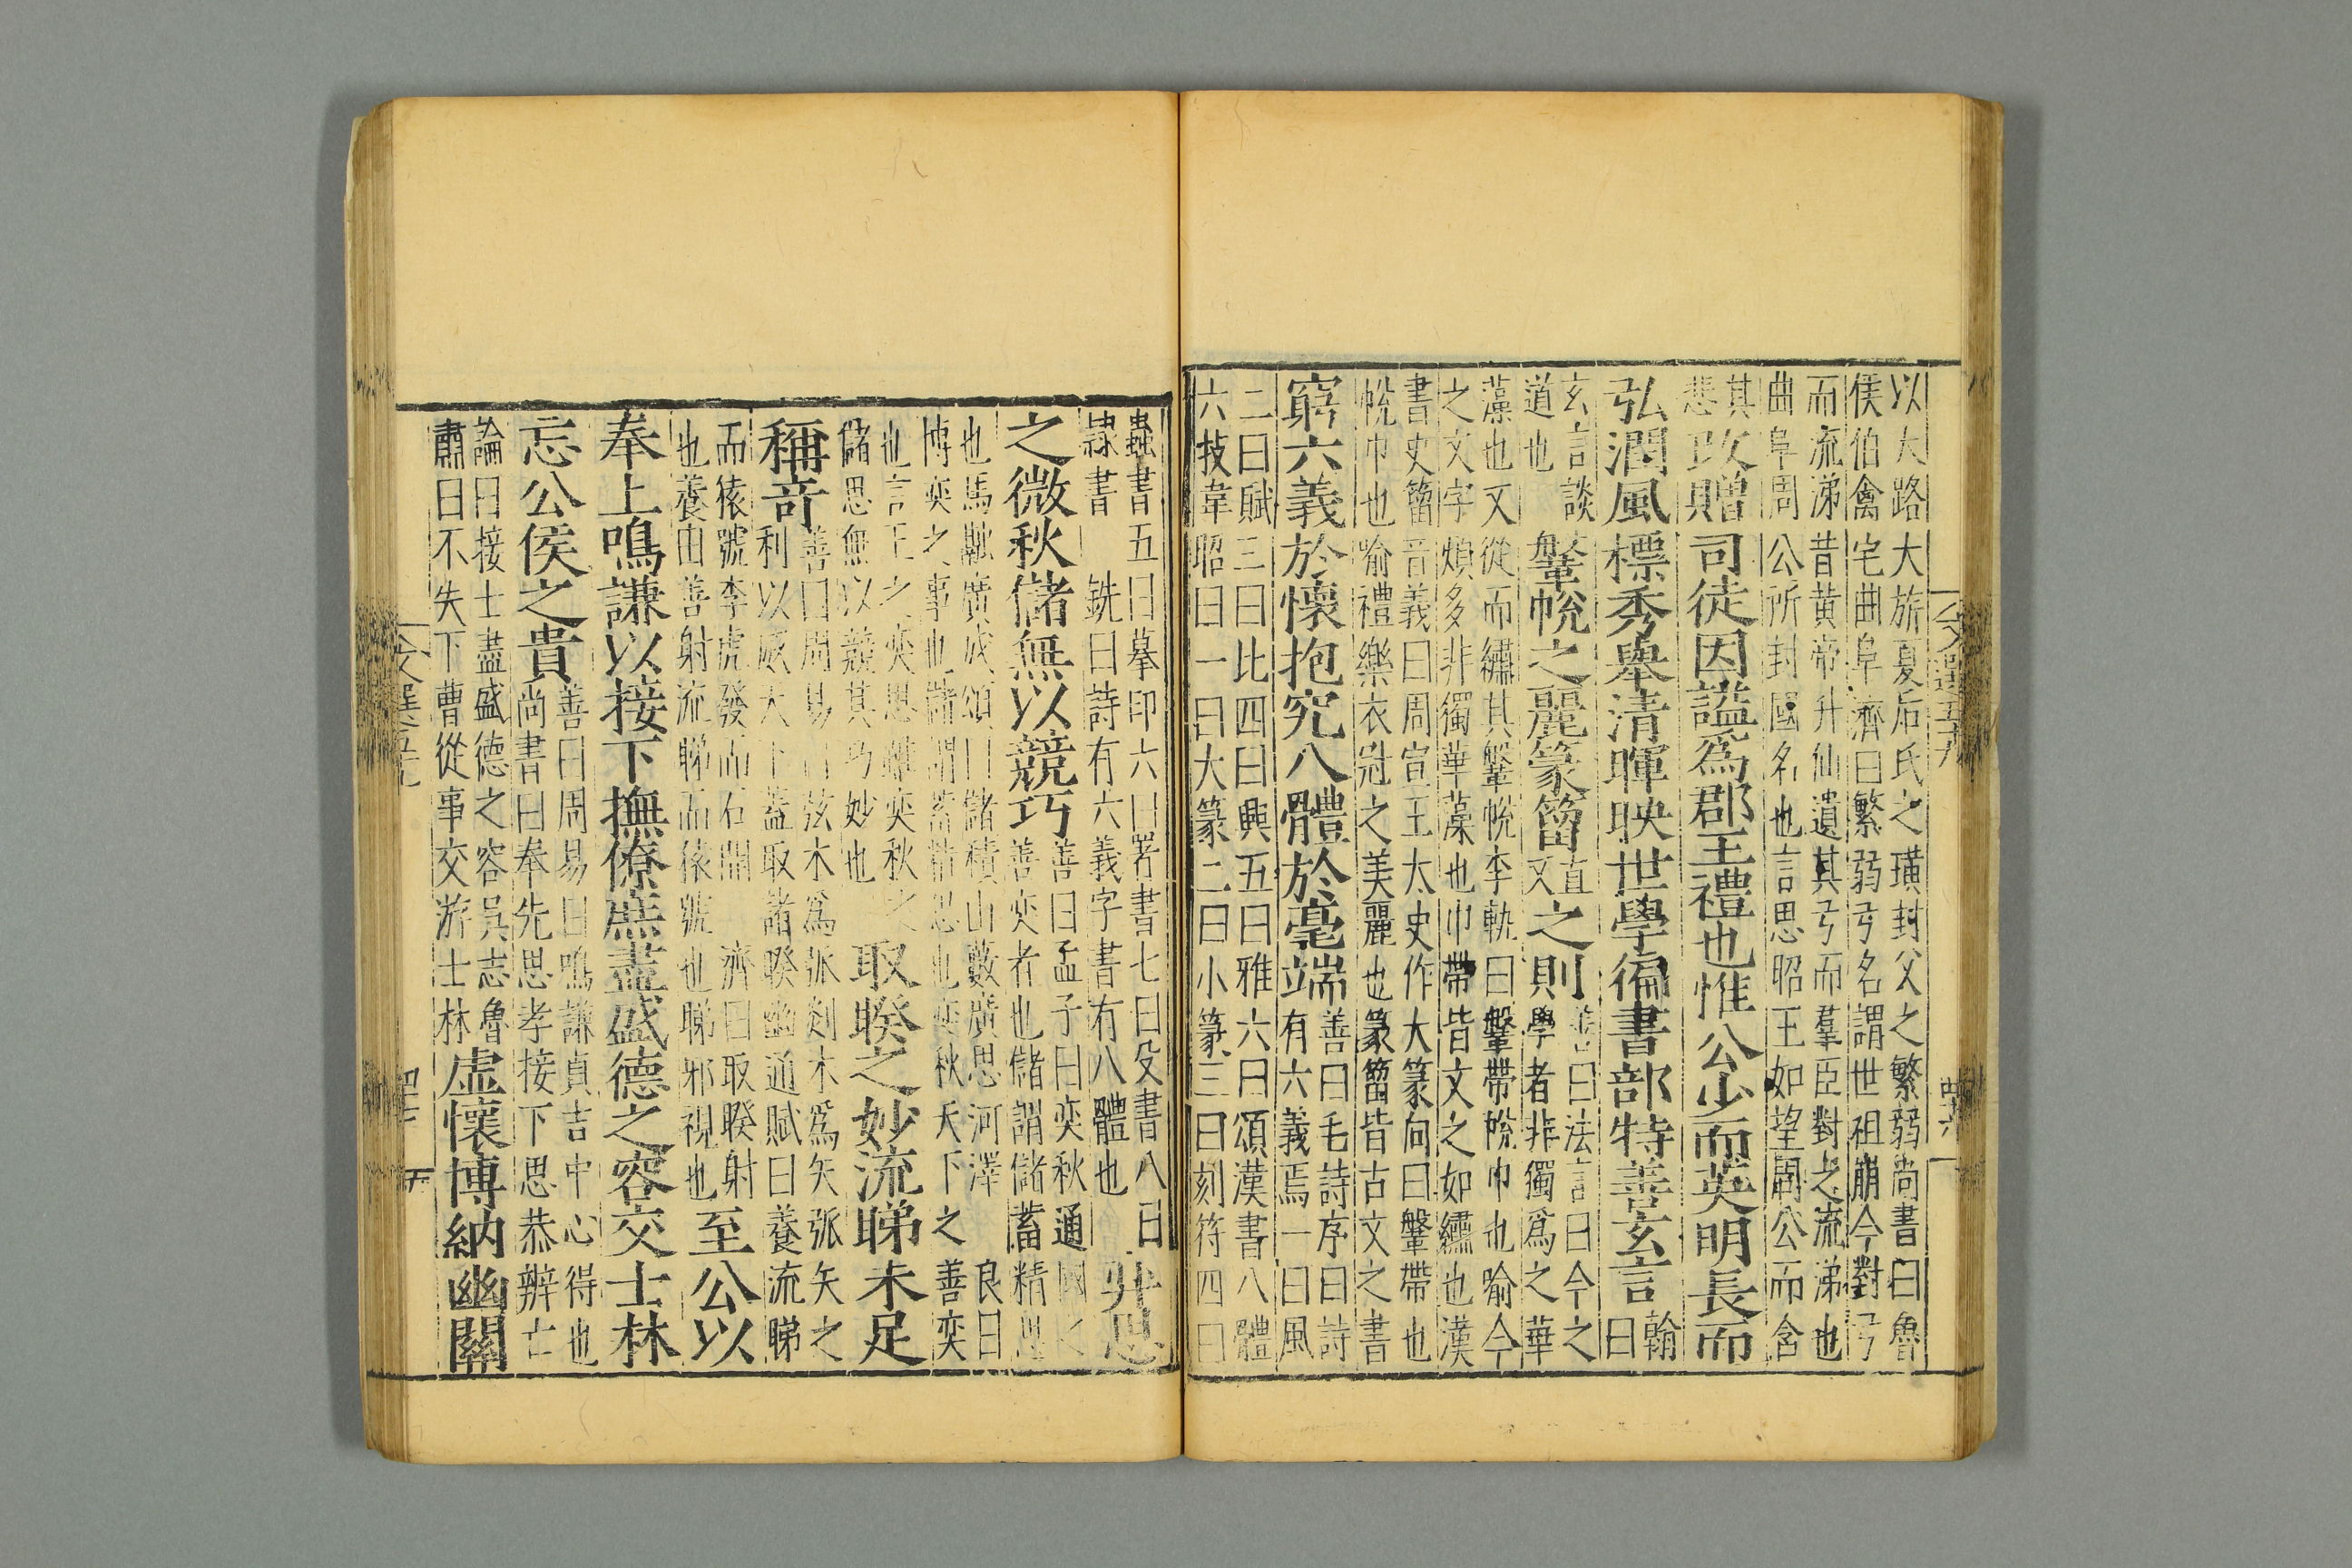 以大路大旂夏后氏之璜封父之繁弱尚書曰魯
侯伯禽宅曲阜濟曰繁弱弓名謂世祖崩今對弓
而流涕昔黄帝升仙遺其弓而羣臣對之流涕也
曲阜周公所封國名也言思昭王如望周公而含
其
悲
改贈司徒因謚爲郡王禮也惟公少而英明長而
弘潤風標秀舉清暉映世學徧書部特善玄言
翰
曰
玄言談
道也
鞶帨之麗篆籀
直
又
之則
善曰法言曰今之
學者非獨爲之華
藻也又從而繡其鞶帨李軌曰鞶帶帨巾也喻今
之文字煩多非獨華藻也巾帶皆文之如繡也漢
書史籀音義曰周宣王太史作大篆向曰鞶帶也
帨巾也喻禮樂衣冠之美麗也篆籀皆古文之書
窮六義於懷抱究八體於毫端
善曰毛詩序曰詩
有六義焉一曰風
二曰賦三曰比四曰興五曰雅六曰頌漢書八體
六技韋昭曰一曰大篆二曰小篆三曰刻符四曰
蟲書五曰摹印六曰署書七曰殳書八曰
隸書 銑曰詩有六義字書有八體也
弈思
之微秋儲無以競巧
善曰孟子曰奕秋通國之
善奕者也儲謂儲蓄精思
也馬融廣成頌曰儲積山藪廣思河澤 良曰
博奕之事也儲謂蓄精思也奕秋天下之善奕
也言王之奕思雖奕秋之
儲思無以競其巧妙也
取睽之妙流睇未足
稱竒
善曰周易曰弦木爲弧剡木爲矢弧矢之
利以威天下蓋取諸睽幽通賦曰養流睇
而猿號李虎發而石開 濟曰取睽射
也養由善射流睇而猿號也睇邪視也
至公以
奉上鳴謙以接下撫僚庶盡盛德之容交士林
忘公侯之貴
善曰周易曰鳴謙貞吉中心得也
尚書曰奉先思孝接下思恭辨亡
論曰接士盡盛德之容吳志魯
肅曰不失下曹從事交游士林
虛懷博納幽關